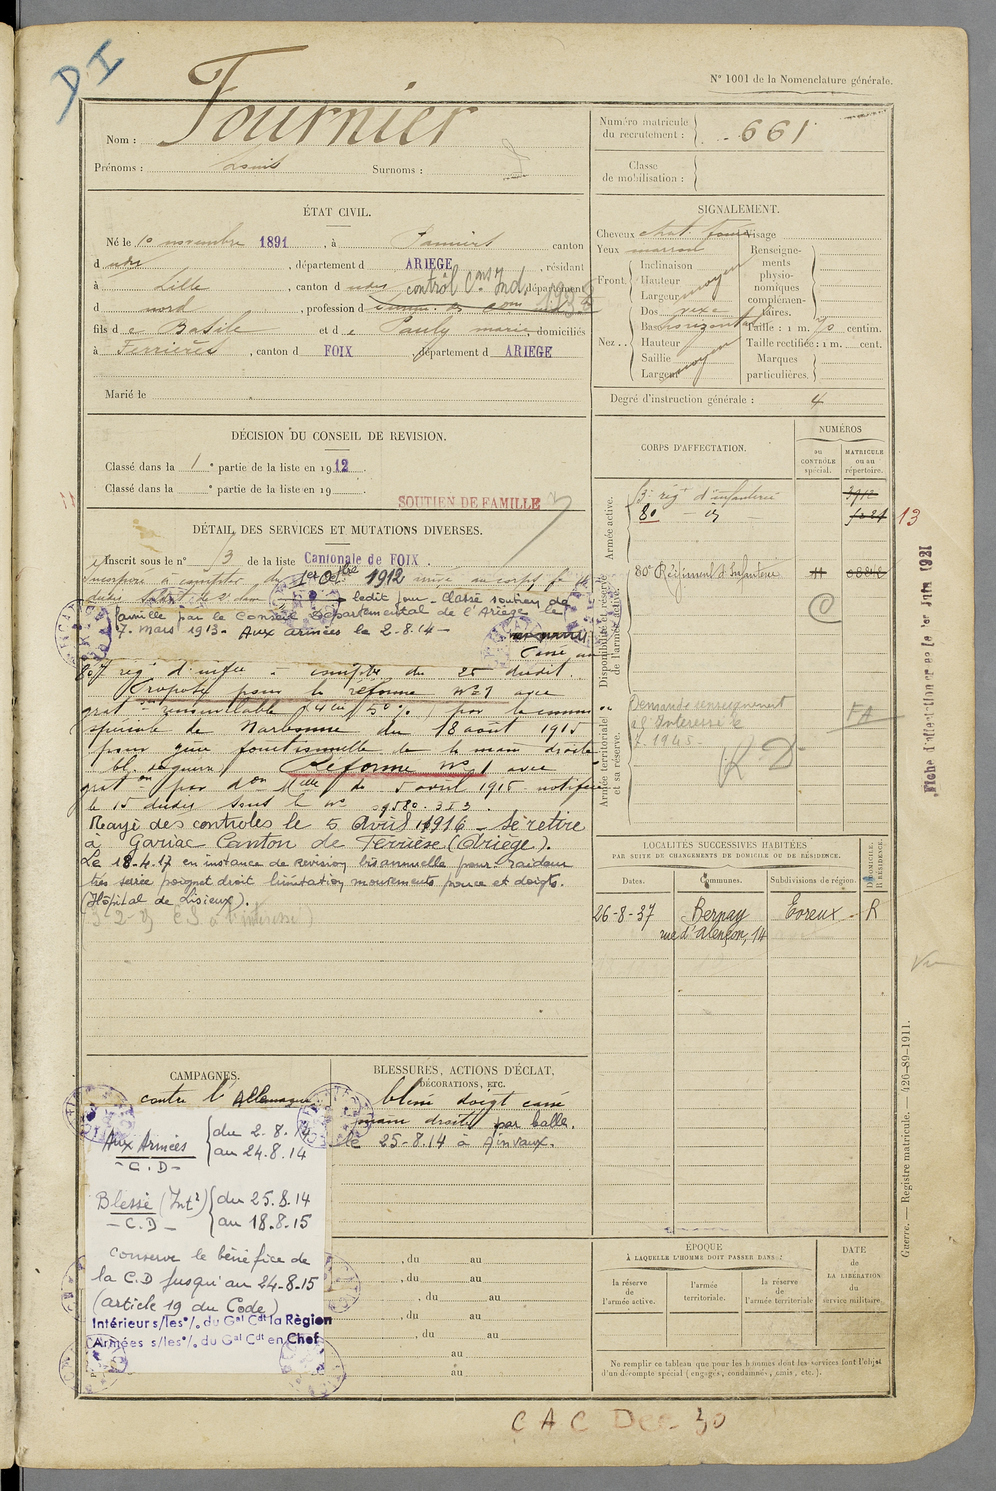 DI
N° 1001 de la Nomenclature générale.
Nom : Fournier
Prénoms : Louis Surnoms :
Numéro matricule du recrutement : 661
Classe de mobilisation :
ÉTAT CIVIL.
Né le 10 novembre 1891, à Pamiers canton
d udit, département d ARIEGE, résidant
à Lille, canton d udit, département
contrôl Cons Ind.
d nord, profession d
fils d e Basile et d e Pauly marie, domiciliés
à Ferrières, canton d FOIX département d ARIEGE
Marié le
SIGNALEMENT.
Cheveux chat. foncé Visage
Yeux marron
Front. Inclinaison Hauteur Largeur moyen
Nez.. Dos vexe Base horizontal Hauteur Saillie Largeur moyen
Renseignements physionomiques complémentaires.
Taille : 1 m. 70 centim.
Taille rectifiée : 1 m. cent.
Marques particulières.
Degré d'instruction générale : 4
DÉCISION DU CONSEIL DE REVISION.
Classé dans la 1e partie de la liste en 1912.
Classé dans la e partie de la liste en 19
SOUTIEN DE FAMILLE
DÉTAIL DES SERVICES ET MUTATIONS DIVERSES.
Inscrit sous le n° 3 de la liste Cantonale de FOIX.
Incorporé à compter du 1er Octbre 1912 arrivé au corps
et soldat de 2e classe ledit jour - Classé soutien de
famille par le Conseil Départemental de l'Ariège le
7 mars 1913. Aux armées le 2-8-14 -
Passé au
80e rég d'infie à compter du 25 dudit.
Proposé pour la réforme N°1 avec
graton renouvelable par la common
spéciale de Narbonne du 18 août 1915
pour gêne fonctionnelle de la main droite
bl. de guerre. Réformé N° 1 avec
graton par don Melle du 5 avril 1916 notifiée
le 15 dudit sous le N°
Rayé des contrôles le 5 Avril 1916 - Se retire
à Ganac Canton de Ferrières (Ariège).
Le 18.4.17 en instance de revision bisannuelle pour: raideur
très serrée poignet droit limitation mouvements pouce et doigts.
(Hôpital de Lisieux).
CORPS D'AFFECTATION.
NUMÉROS
au CONTRÔLE spécial.
MATRICULE ou au répertoire.
Armée active.
3e régt d'infanterie
80 - d° -
13
Disponibilité et réserve de l'armée active.
80e Régiment d'Infanterie
C
Armée territoriale et sa réserve.
Demande renseignement
FA
RD
Fiche d'affectation
LOCALITÉS SUCCESSIVES HABITÉES
PAR SUITE DE CHANGEMENTS DE DOMICILE OU DE RÉSIDENCE.
Dates. Communes. Subdivisions de région. D. DOMICILE. R. RÉSIDENCE.
26-8-37 Bernay Evreux - R
rue d'Alençon, 14
CAMPAGNES.
contre l'Allemagne.
Aux Armées - C.D - du 2.8.14 au 24.8.14
Blessé (Int') - C.D - du 25.8.14 au 18.8.15
Conserve le bénéfice de
la C.D jusqu'au 24-8-15
(article 19 du Code)
Intérieur s/les °/. du Gal Cdt la Région
Armées s/les °/. du Gal Cdt en Chef
BLESSURES, ACTIONS D'ÉCLAT,
DÉCORATIONS, ETC.
blessé doigt cassé
main droite par balle.
le 25-8.14 à Einvaux.
, du au
, du au
, du au
, du au
, du au
au
au
ÉPOQUE
À LAQUELLE L'HOMME DOIT PASSER DANS :
la réserve de l'armée active. l'armée territoriale. la réserve de l'armée territoriale
DATE de LA LIBÉRATION du service militaire.
Ne remplir ce tableau que pour les hommes dont les services font l'objet
d'un décompte spécial (engagés, condamnés, omis, etc.).
Guerre. — Registre matricule. — 426-89-1911.
CAC Dec 30